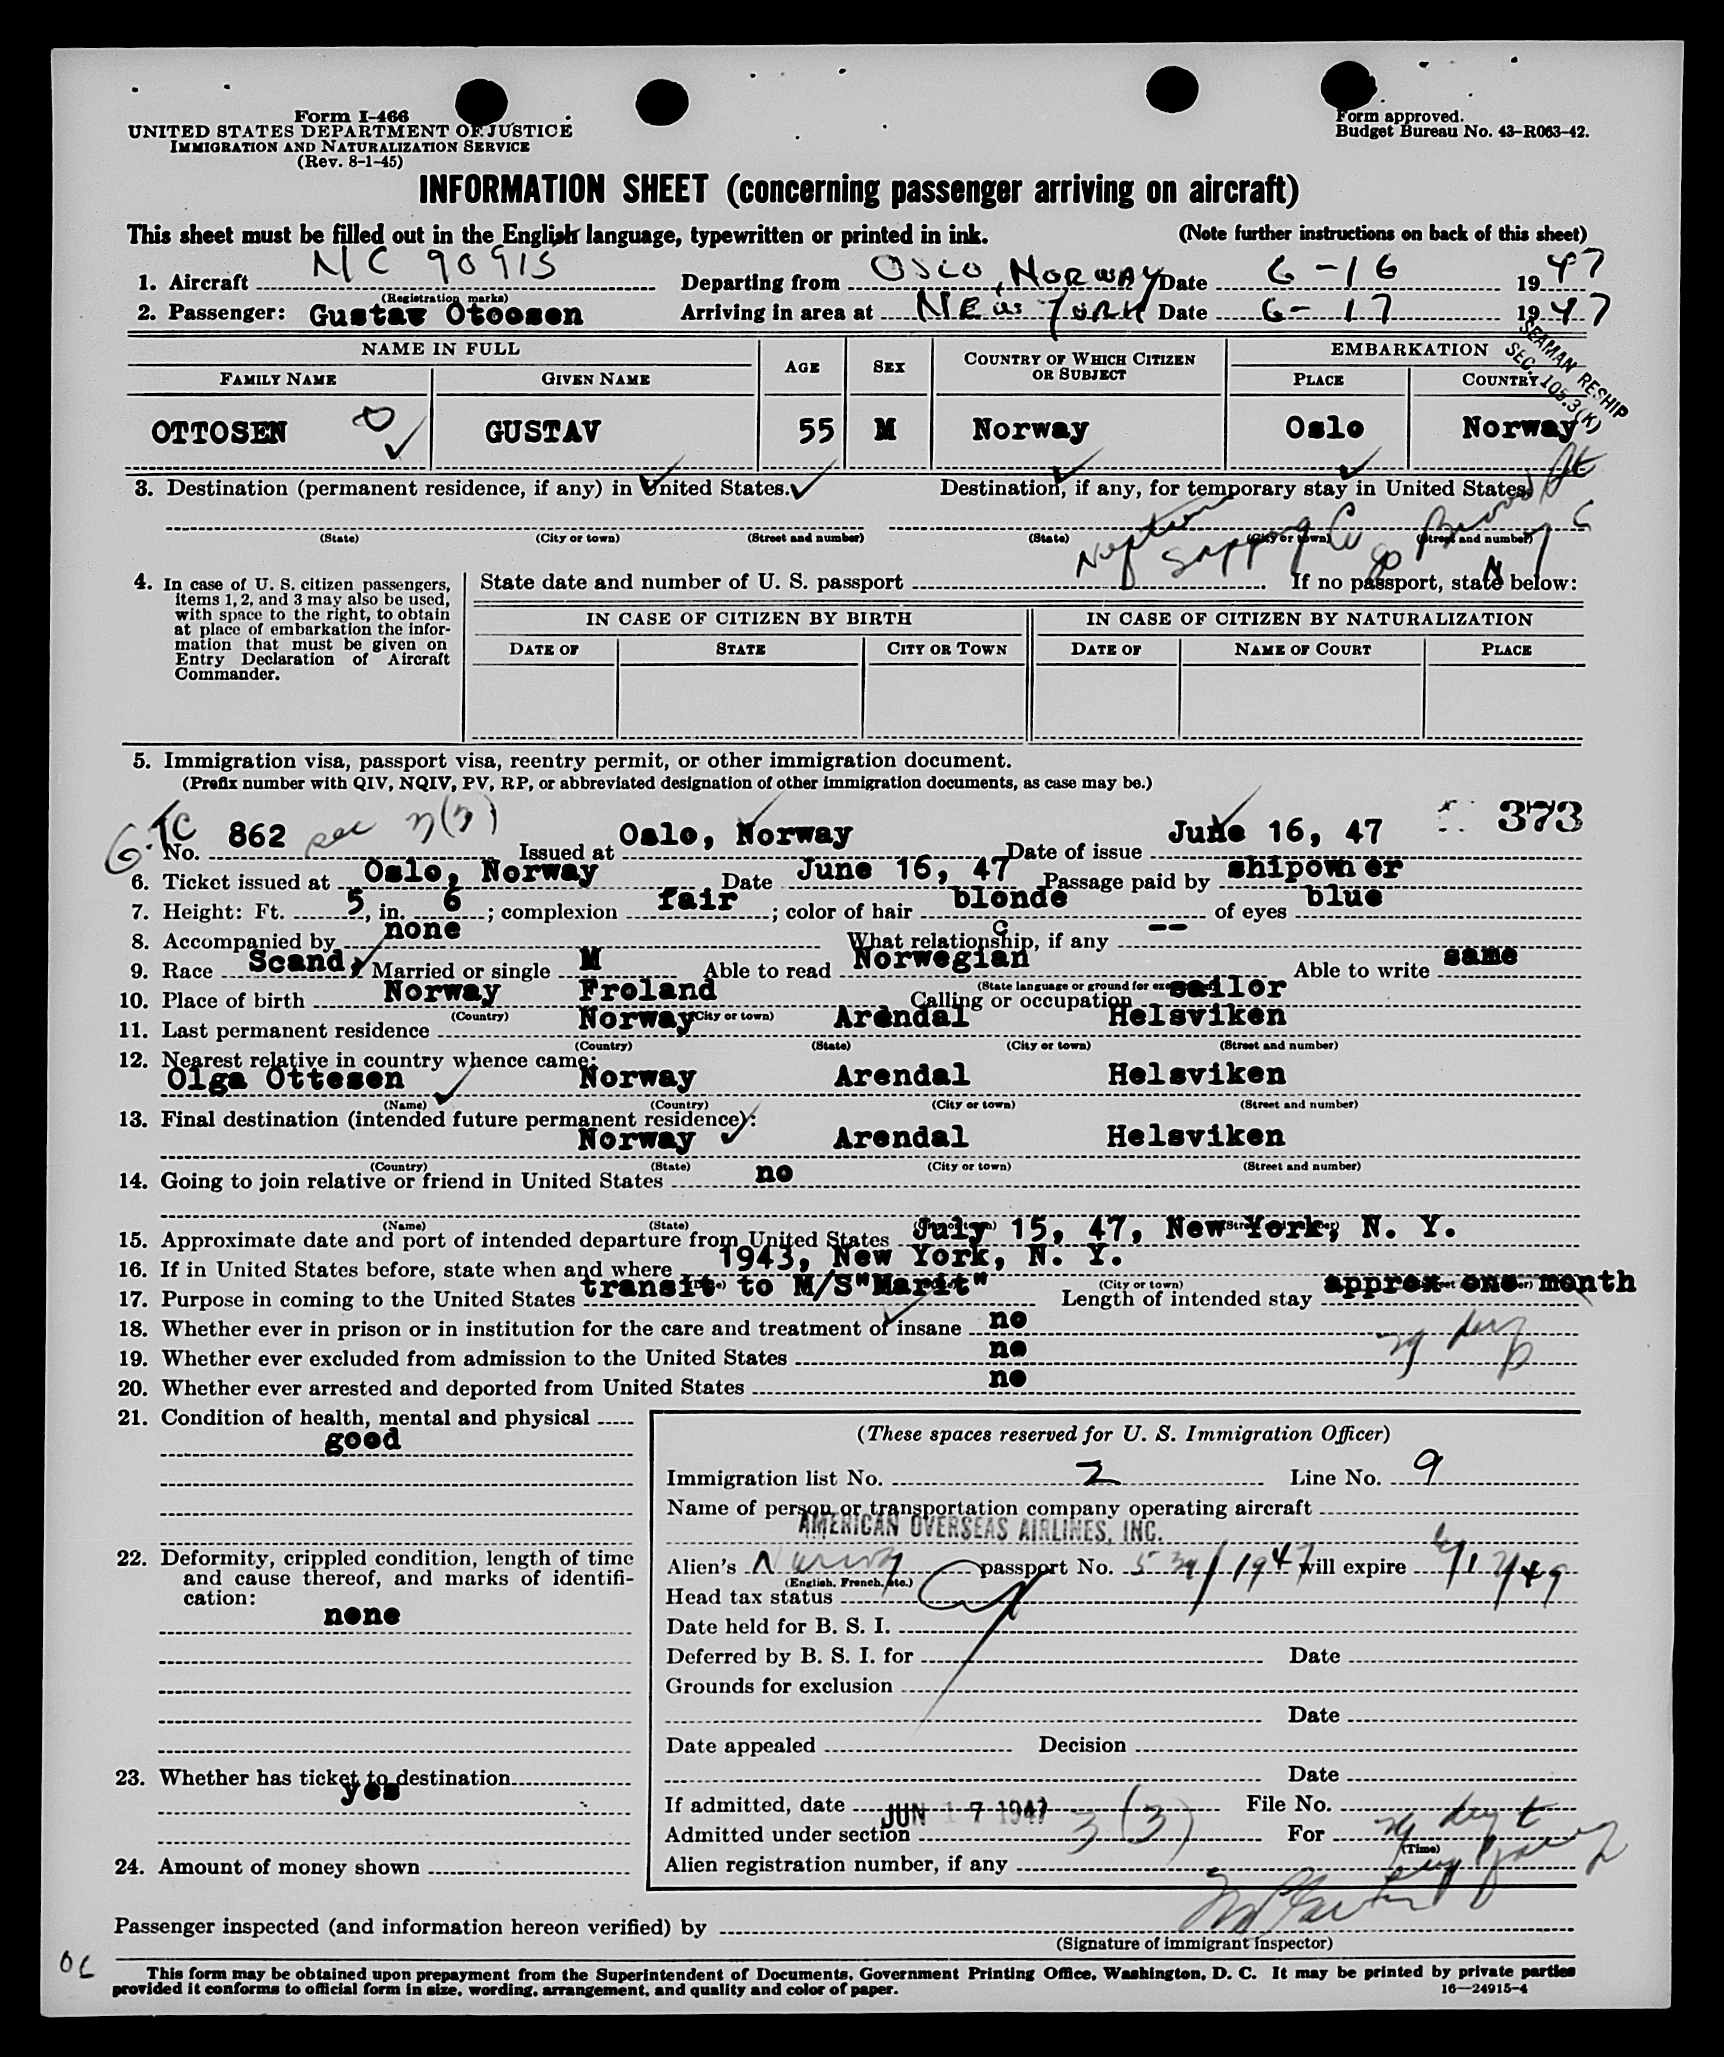 Form I-466
UNITED STATES DEPARTMENT OF JUSTICE
IMMIGRATION AND NATURALIZATION SERVICE
(Rev. 8-1-45)
Form approved.
Budget Bureau No. 43-R063-42.
INFORMATION SHEET (concerning passenger arriving on aircraft)
This sheet must be filled out in the English language, typewritten or printed in ink. (Note further instructions on back of this sheet)
1. Aircraft NC 90915 Departing from OSLO, NORWAY Date 6-16 1947
(Registration marks)
2. Passenger: Gustav Otoosen Arriving in area at NEW YORK Date 6-17 1947
SEAMAN RESHIP
SEC. 105.3(K)
NAME IN FULL AGE SEX COUNTRY OF WHICH CITIZEN OR SUBJECT EMBARKATION
FAMILY NAME GIVEN NAME PLACE COUNTRY
OTTOSEN GUSTAV 55 M Norway Oslo Norway
3. Destination (permanent residence, if any) in United States. Destination, if any, for temporary stay in United States.
(State) (City or town) (Street and number) (State) (City or town) (Street and number)
80 Broad St
N Y C
4. In case of U. S. citizen passengers, items 1, 2, and 3 may also be used, with space to the right, to obtain at place of embarkation the information that must be given on Entry Declaration of Aircraft Commander.
State date and number of U. S. passport If no passport, state below:
IN CASE OF CITIZEN BY BIRTH IN CASE OF CITIZEN BY NATURALIZATION
DATE OF STATE CITY OR TOWN DATE OF NAME OF COURT PLACE
5. Immigration visa, passport visa, reentry permit, or other immigration document.
(Prefix number with QIV, NQIV, PV, RP, or abbreviated designation of other immigration documents, as case may be.)
373
No. TC 862 sec 3(3) Issued at Oslo, Norway Date of issue June 16, 47
6. Ticket issued at Oslo, Norway Date June 16, 47 Passage paid by shipowner
7. Height: Ft. 5, in. 6; complexion fair; color of hair blonde of eyes blue
8. Accompanied by none What relationship, if any --
9. Race Scand. Married or single M Able to read Norwegian Able to write same
(State language or ground for exemption)
10. Place of birth Norway Froland Calling or occupation sailor
(Country) (City or town)
11. Last permanent residence Norway Arendal Helsviken
(Country) (State) (City or town) (Street and number)
12. Nearest relative in country whence came:
Olga Ottesen Norway Arendal Helsviken
(Name) (Country) (City or town) (Street and number)
13. Final destination (intended future permanent residence):
Norway Arendal Helsviken
(Country) (State) (City or town) (Street and number)
14. Going to join relative or friend in United States no
(Name) (State) (City or town) (Street and number)
15. Approximate date and port of intended departure from United States July 15, 47, New York, N. Y.
16. If in United States before, state when and where 1943, New York, N. Y.
(City or town)
17. Purpose in coming to the United States transit to M/S"Marit" Length of intended stay approx one month
18. Whether ever in prison or in institution for the care and treatment of insane no
19. Whether ever excluded from admission to the United States no
20. Whether ever arrested and deported from United States no
21. Condition of health, mental and physical
good
22. Deformity, crippled condition, length of time and cause thereof, and marks of identification:
none
23. Whether has ticket to destination
yes
24. Amount of money shown
(These spaces reserved for U. S. Immigration Officer)
Immigration list No. 2 Line No. 9
Name of person or transportation company operating aircraft
AMERICAN OVERSEAS AIRLINES, INC.
Alien's passport No. will expire
(English, French, etc.)
Head tax status
Date held for B. S. I.
Deferred by B. S. I. for Date
Grounds for exclusion
Date
Date appealed Decision
Date
If admitted, date JUN 17 1947 File No.
Admitted under section 3(3) For
(Time)
Alien registration number, if any
Passenger inspected (and information hereon verified) by
(Signature of immigrant inspector)
This form may be obtained upon prepayment from the Superintendent of Documents, Government Printing Office, Washington, D. C. It may be printed by private parties
provided it conforms to official form in size, wording, arrangement, and quality and color of paper. 16—24915-4